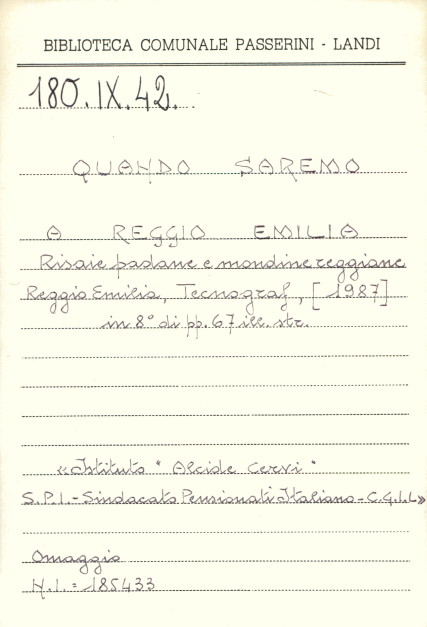 BIBLIOTECA COMUNALE PASSERINI - LANDI
180.IX.42.
QUANDO SAREMO
A REGGIO EMILIA
Risaie padane e mondine reggiane
Reggio Emilia, Tecnograf, [1987]
in 8° di pp. 67 ill. str.
«Istituto "Alcide Cervi"
S.P.I. - Sindacato Pensionati Italiano - C.G.I.L»
Omaggio
N.I. = 185433